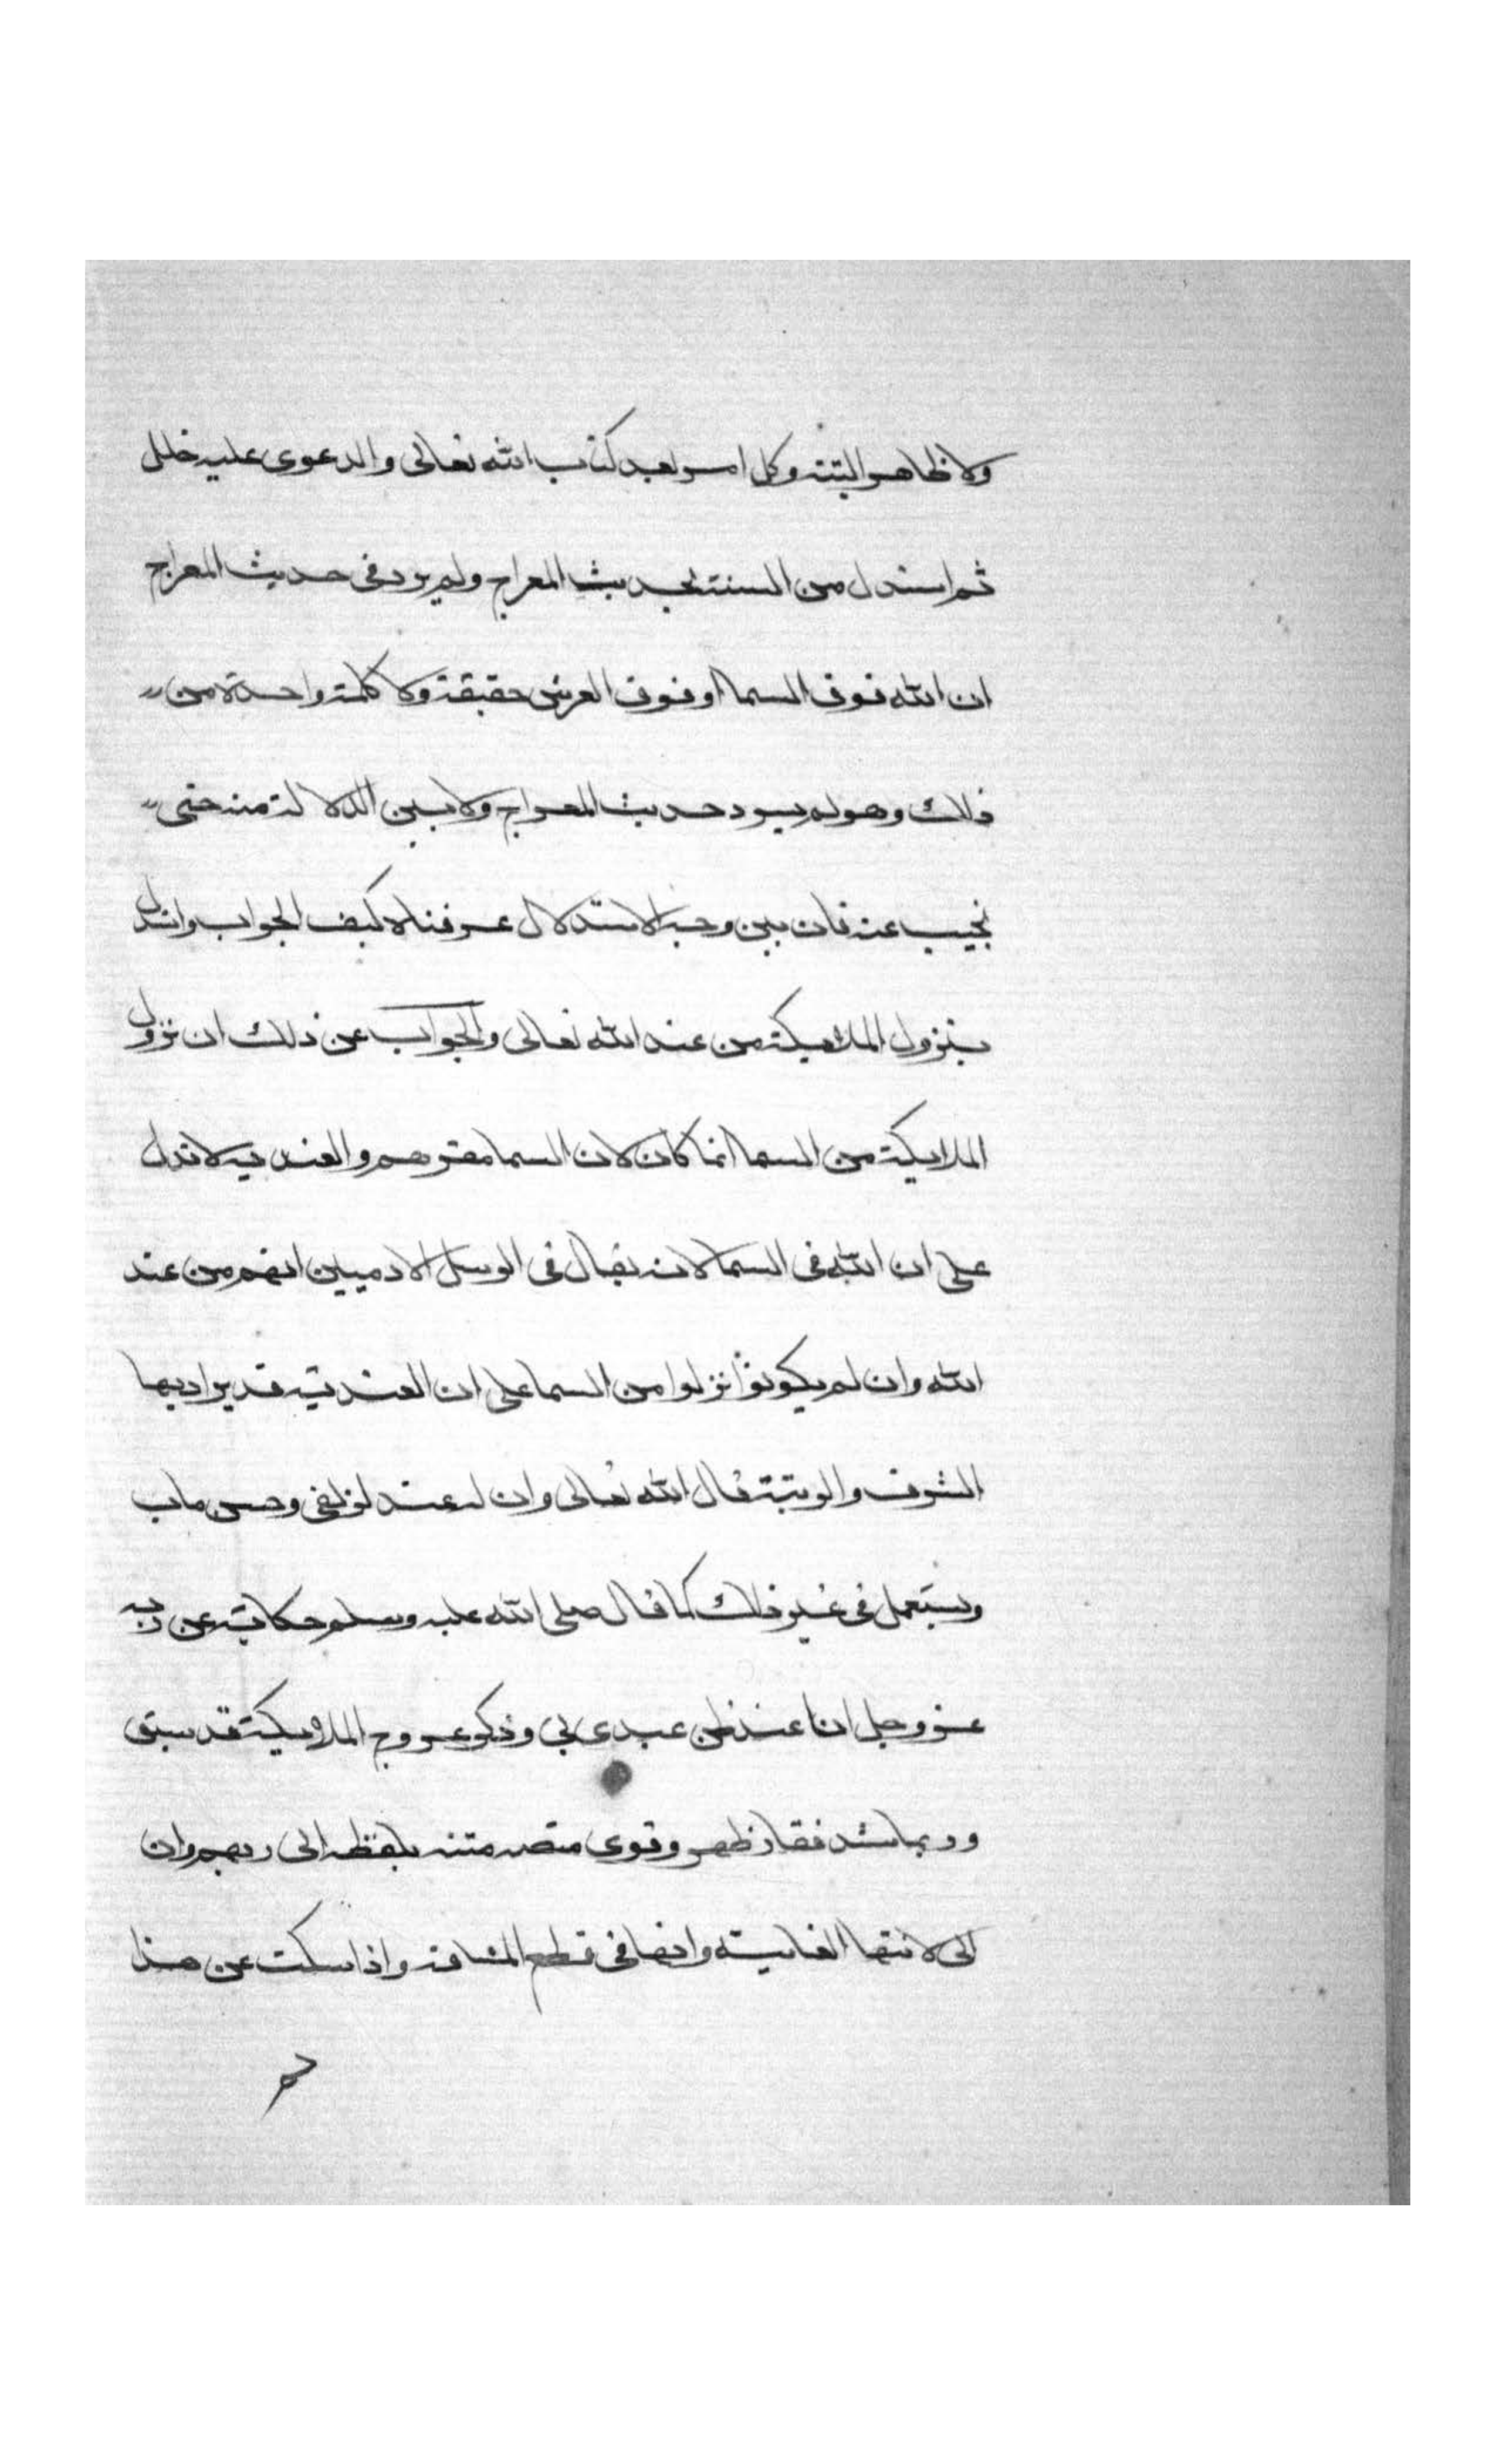 ولا ظاهر البتة وكل امر بعد كتاب الله تعالى والدعوى عليه خلل
ثم استدل من السنة بحديث المعراج ولم يرد في حديث المعراج
ان الله فوق السما او فوق العرش حقيقة ولا كلمة واحدة من
ذلك وهو لم يسرد حديث المعراج ولا بين الدلالة منه حتى
نجيب عنه فان بين وجه الاستدلال عرفناه كيف الجواب واستدل
بنزول الملايكة من عند الله تعالى والجواب عن ذلك ان نزول
الملايكة من السما انما كان لان السما مقرهم والعندية لا تدل
على ان الله في السما لانه يقال في الرسل الادميين انهم من عند
الله وان لم يكونوا نزلوا من السما على ان العندية قد يراد بها
الشرف والرتبة قال الله تعالى وان له عندنا لزلفى وحسن ماب
ويستعمل في غير ذلك كما قال صلى الله عليه وسلم حكاية عن ربه
عز وجل انا عند ظن عبدي بي وذكر عروج الملايكة قد سبق
وربما شد فقار ظهره وقوى منته بلفظه الى ربهم وان
الى لانتها الغاية وانها في قطع المسافة واذا سكت عن هذا